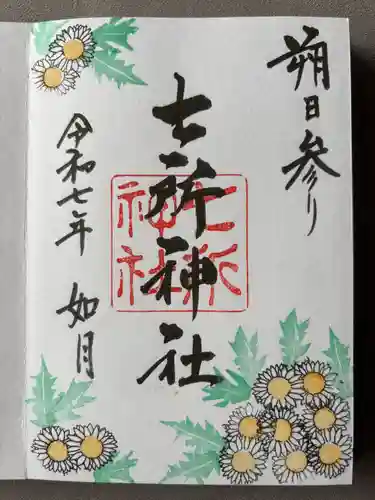 朔日参り
七所神社
七所神社
令和七年 如月